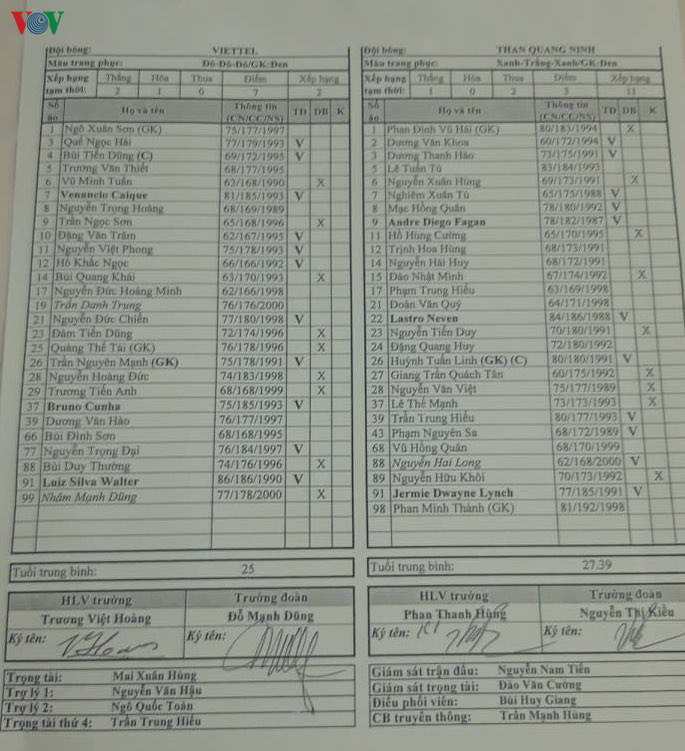 VOV
Đội bóng: VIETTEL
Màu trang phục: Đỏ-Đỏ-Đỏ/GK:Đen
Xếp hạng tạm thời: Thắng Hòa Thua Điểm Xếp hạng
2 1 0 7 2
Số áo Họ và tên Thông tin (CN/CC/NS) TĐ DB K
1 Ngô Xuân Sơn (GK) 75/177/1997
3 Quế Ngọc Hải 77/179/1993 V
4 Bùi Tiến Dũng (C) 69/172/1995 V
5 Trương Văn Thiết 68/177/1995
6 Vũ Minh Tuấn 63/168/1990 X
7 Venancio Caique 81/185/1993 V
8 Nguyễn Trọng Hoàng 68/169/1989
9 Trần Ngọc Sơn 65/168/1996 X
10 Đặng Văn Trâm 62/167/1995 V
11 Nguyễn Việt Phong 75/178/1993 V
12 Hồ Khắc Ngọc 66/166/1992 V
14 Bùi Quang Khải 63/170/1993 X
17 Nguyễn Đức Hoàng Minh 62/166/1998
19 Trần Danh Trung 76/176/2000
21 Nguyễn Đức Chiến 77/180/1998 V
23 Đàm Tiến Dũng 72/174/1996 X
25 Quàng Thế Tài (GK) 76/178/1996 X
26 Trần Nguyên Mạnh (GK) 75/178/1991 V
28 Nguyễn Hoàng Đức 74/183/1998 X
29 Trương Tiến Anh 68/168/1999 X
37 Bruno Cunha 75/185/1993 V
39 Dương Văn Hào 76/177/1997
66 Bùi Đình Sơn 68/168/1995
77 Nguyễn Trọng Đại 76/184/1997 V
88 Bùi Duy Thường 74/176/1996 X
91 Luiz Silva Walter 86/186/1990 V
99 Nhâm Mạnh Dũng 77/178/2000 X
Tuổi trung bình: 25
HLV trưởng Trưởng đoàn
Trương Việt Hoàng Đỗ Mạnh Dũng
Ký tên: Ký tên:
Trọng tài: Mai Xuân Hùng
Trợ lý 1: Nguyễn Văn Hậu
Trợ lý 2: Ngô Quốc Toàn
Trọng tài thứ 4: Trần Trung Hiếu
Đội bóng: THAN QUẢNG NINH
Màu trang phục: Xanh/Trắng-Xanh/GK:Đen
Xếp hạng tạm thời: Thắng Hòa Thua Điểm Xếp hạng
1 0 2 3 11
Số áo Họ và tên Thông tin (CN/CC/NS) TĐ DB K
1 Phan Đình Vũ Hải (GK) 80/183/1994 X
2 Dương Văn Khoa 60/172/1994 V
3 Dương Thanh Hào 73/175/1991 V
5 Lê Tuấn Tú 83/184/1993
6 Nguyễn Xuân Hùng 69/173/1991 X
7 Nghiêm Xuân Tú 65/175/1988 V
8 Mạc Hồng Quân 78/180/1992 V
9 Andre Diego Fagan 78/182/1987 V
11 Hồ Hùng Cường 65/170/1995 X
12 Trịnh Hoa Hùng 68/173/1991
14 Nguyễn Hải Huy 68/172/1991
15 Đào Nhật Minh 67/174/1992 X
17 Phạm Trung Hiếu 63/169/1998
21 Đoàn Văn Quý 64/171/1998
22 Lastro Neven 84/186/1988 V
23 Nguyễn Tiến Duy 70/180/1991 X
24 Đặng Quang Huy 72/180/1992
26 Huỳnh Tuấn Linh (GK) (C) 80/180/1991 V
27 Giang Trần Quách Tân 60/175/1992 X
28 Nguyễn Văn Việt 75/177/1989 X
37 Lê Thế Mạnh 73/173/1993 X
39 Trần Trung Hiếu 80/177/1993 V
43 Phạm Nguyên Sa 68/172/1989 V
68 Vũ Hồng Quân 68/170/1999
88 Nguyễn Hai Long 62/168/2000 V
89 Nguyễn Hữu Khôi 70/173/1992 X
91 Jermie Dwayne Lynch 77/185/1991 V
98 Phan Minh Thành (GK) 81/192/1998
Tuổi trung bình: 27.39
HLV trưởng Trưởng đoàn
Phan Thanh Hùng Nguyễn Thị Kiều
Ký tên: Ký tên:
Giám sát trận đấu: Nguyễn Nam Tiến
Giám sát trọng tài: Đào Văn Cường
Điều phối viên: Bùi Huy Giang
CB truyền thông: Trần Mạnh Hùng